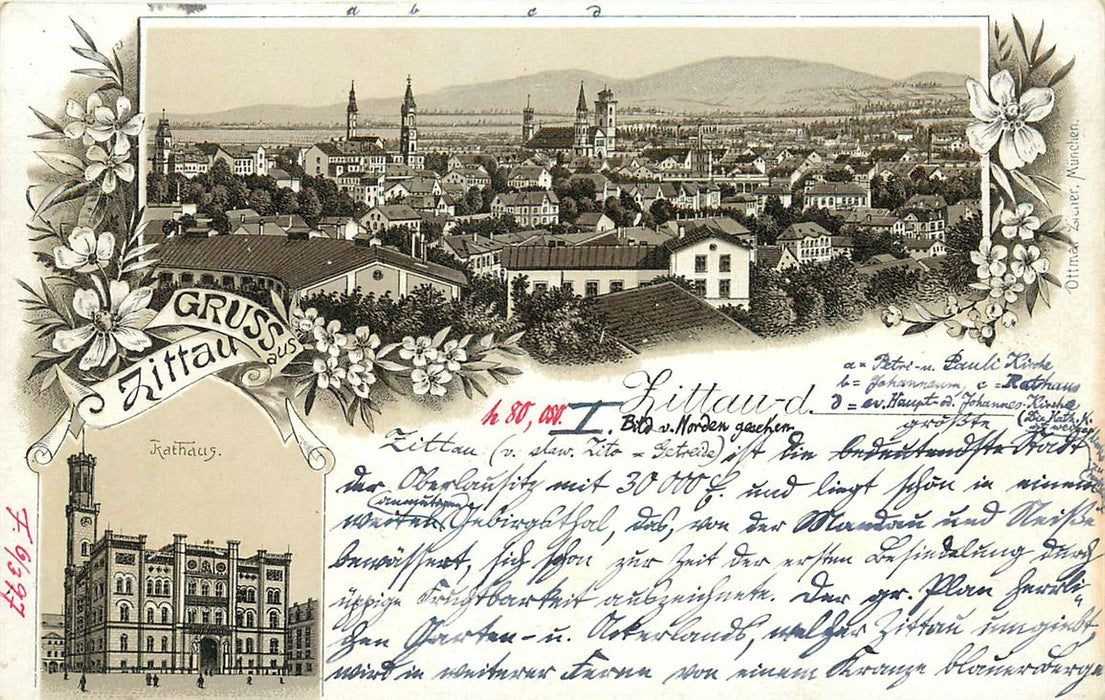 a b c d
GRUSS
aus
Zittau
Rathaus.
Ottmar Zieher, München.
a = Petri- u. Pauli Kirche
b = Johanneum, c = Rathaus
d = ev. Haupt- od. Johannes-Kirche
(Die Kath. K.
Zittau d.
h 80, 050.
I.
Bild v. Norden gesehen
größte
Zittau (v. slaw. Zito = Getreide) ist die bedeutendste Stadt
der Oberlausitz mit 30 000 E. und liegt schön in einem
anmutigen
weiten Gebirgsthal, das, von der Mandau und Neiße
bewässert, sich schon zur Zeit der ersten Besiedelung durch
üppige Fruchtbarkeit auszeichnete. Der gr. Plan herrli-
chen Garten- u. Ackerlands, welcher Zittau umgiebt,
wird in weiterer Ferne von einem Kranze blauer Berge